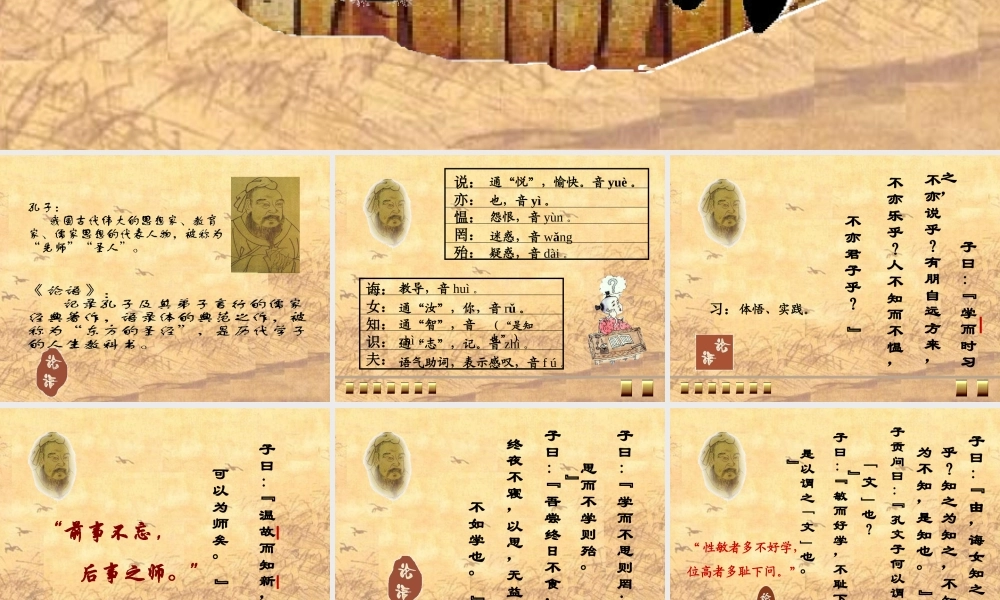 孔子：
我国古代伟大的思想家、教育
家、儒家思想的代表人物，被称为
“先师”“圣人”。
《论语》：
记录孔子及其弟子言行的儒家
经典著作，语录体的典范之作，被
称为“东方的圣经”，是历代学子
的人生教科书。
论语
说： 通“悦”，愉快。音 yuè 。
亦： 也，音 yì 。
愠： 怨恨，音 yùn
罔： 迷惑，音 wǎng
殆： 疑惑，音 dài 。
诲： 教导，音 huì 。
女： 通“汝”，你，音 rǔ 。
知： 通“智”，音 （“是知
识： 通“志”，记。音 zhì 。
夫： 语气助词，表示感叹，音 f ú
子曰：『学而时习
之，
不亦说乎？有朋自远方来，
不亦乐乎？人不知而不愠，
不亦君子乎？ 』
习： 体悟、实践。
论语
子曰：『温故而知新，
可以为师矣。 』
“前事不忘，
后事之师。”
子曰：『学而不思则罔，
思而不学则殆。 』
子曰：『吾尝终日不食，
终夜不寝，以思，无益
不如学也。 』
论语
子曰：『由，诲女知之
乎？知之为知之，不知
为不知，是知也。 』
子贡问曰：『孔文子何以谓
「文」也？ 』
子曰：『敏而好学，不耻下
是以谓之「文」也。 』
“性敏者多不好学，
位高者多耻下问。”